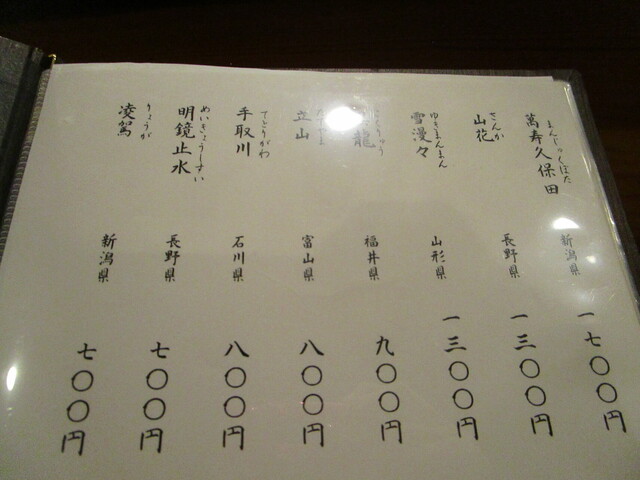 萬寿久保田 まんじゅくぼた 新潟県 一七〇〇円
山花 さんか 長野県 一三〇〇円
雪漫々 ゆきまんまん 山形県 一三〇〇円
龍 福井県 九〇〇円
立山 富山県 八〇〇円
手取川 てどりがわ 石川県 八〇〇円
明鏡止水 めいきょうしすい 長野県 七〇〇円
凌駕 りょうが 新潟県 七〇〇円